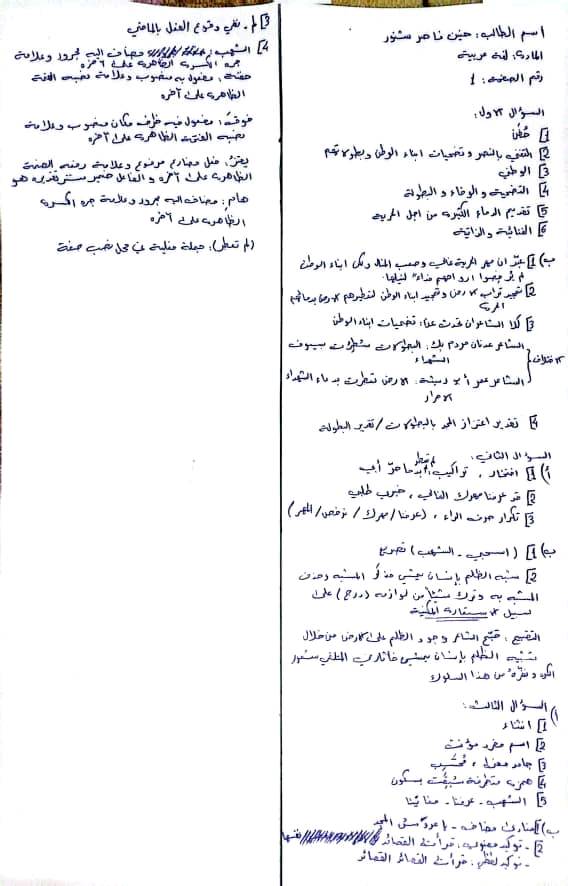 اسم الطالب: حنين ناصر سنور
المادة: لغة عربية
رقم الصفحة: 1
السؤال الأول:
1] خطأ
2] التغني بالنصر وتضحيات ابناء الوطن وبطولاتهم
3] الوطني
4] التضحية والوفاء والبطولة
5] تقديم الدماء الكثيرة من اجل الحرية
6] الغنائية والذاتية
ب) 1] عبّر ان مهر الحرية غالي وصعب المنال ولكن ابناء الوطن
لم يرخصوا ارواحهم فداءً لنيلها.
2] تمجيد تراب الارض وتمجيد ابناء الوطن لتعطيرهم الارض بدمائهم
الحرة
3] كلا الشاعران تحدث عن: تضحيات ابناء الوطن
الاختلاف
الشاعر عدنان مردم بك: البطولات سُطرت بسيوف
الشهداء
الشاعر عمر أبو ريشة: الارض تعطرت بدماء الشهداء
الاحرار
4] تقدير اعتزاز المجد بالبطولات / تقدير البطولة
السؤال الثاني:
أ) 1] افتخار، تراكيب: لم تعطل حرّ أبي
2] قد عرفنا مهرك الغالي، خبري طلبي
3] تكرار حرف الراء، (عرفنا / مهرك / نرخص / المهر)
ب) 1] (اسحبي - الشهب) تصريع
2] شبّه الظلم بإنسان يمشي ذكر المشبه وحذف
المشبه به وترك شيئاً من لوازمه (درج) على
سبيل الاستعارة المكنية
التقبيح: قبّح الشاعر وجود الظلم على الارض من خلال
تشبيه الظلم بإنسان يمشي فأثار في المتلقي شعور
الكره ونفّره من هذا السلوك
السؤال الثالث:
أ) 1] انشاء
2] اسم مفرد مؤنث
3]
4] همزة متطرفة سُبقت بسكون
5] الشهب - عرفنا -
ب) 1] منادى مضاف - يا عروسَ المجد
2] - توكيد معنوي: قرأت القصائد نفسها
- توكيد لفظي: قرأت القصائد القصائد
3] نفي وقوع الفعل بالماضي
4] الشهب: مضاف اليه مجرور وعلامة
جره الكسرة الظاهرة على آخره
حقه: مفعول به منصوب وعلامة نصبه الفتحة
الظاهرة على آخره
فوقه: مفعول فيه ظرف مكان منصوب وعلامة
نصبه الفتحة الظاهرة على آخره
فعل مضارع مرفوع وعلامة رفعه الضمة
الظاهرة على آخره والفاعل ضمير مستتر تقديره هو
هام: مضاف اليه مجرور وعلامة جره الكسرة
الظاهرة على آخره
(لم تعطل): جملة فعلية في محل نصب صفة